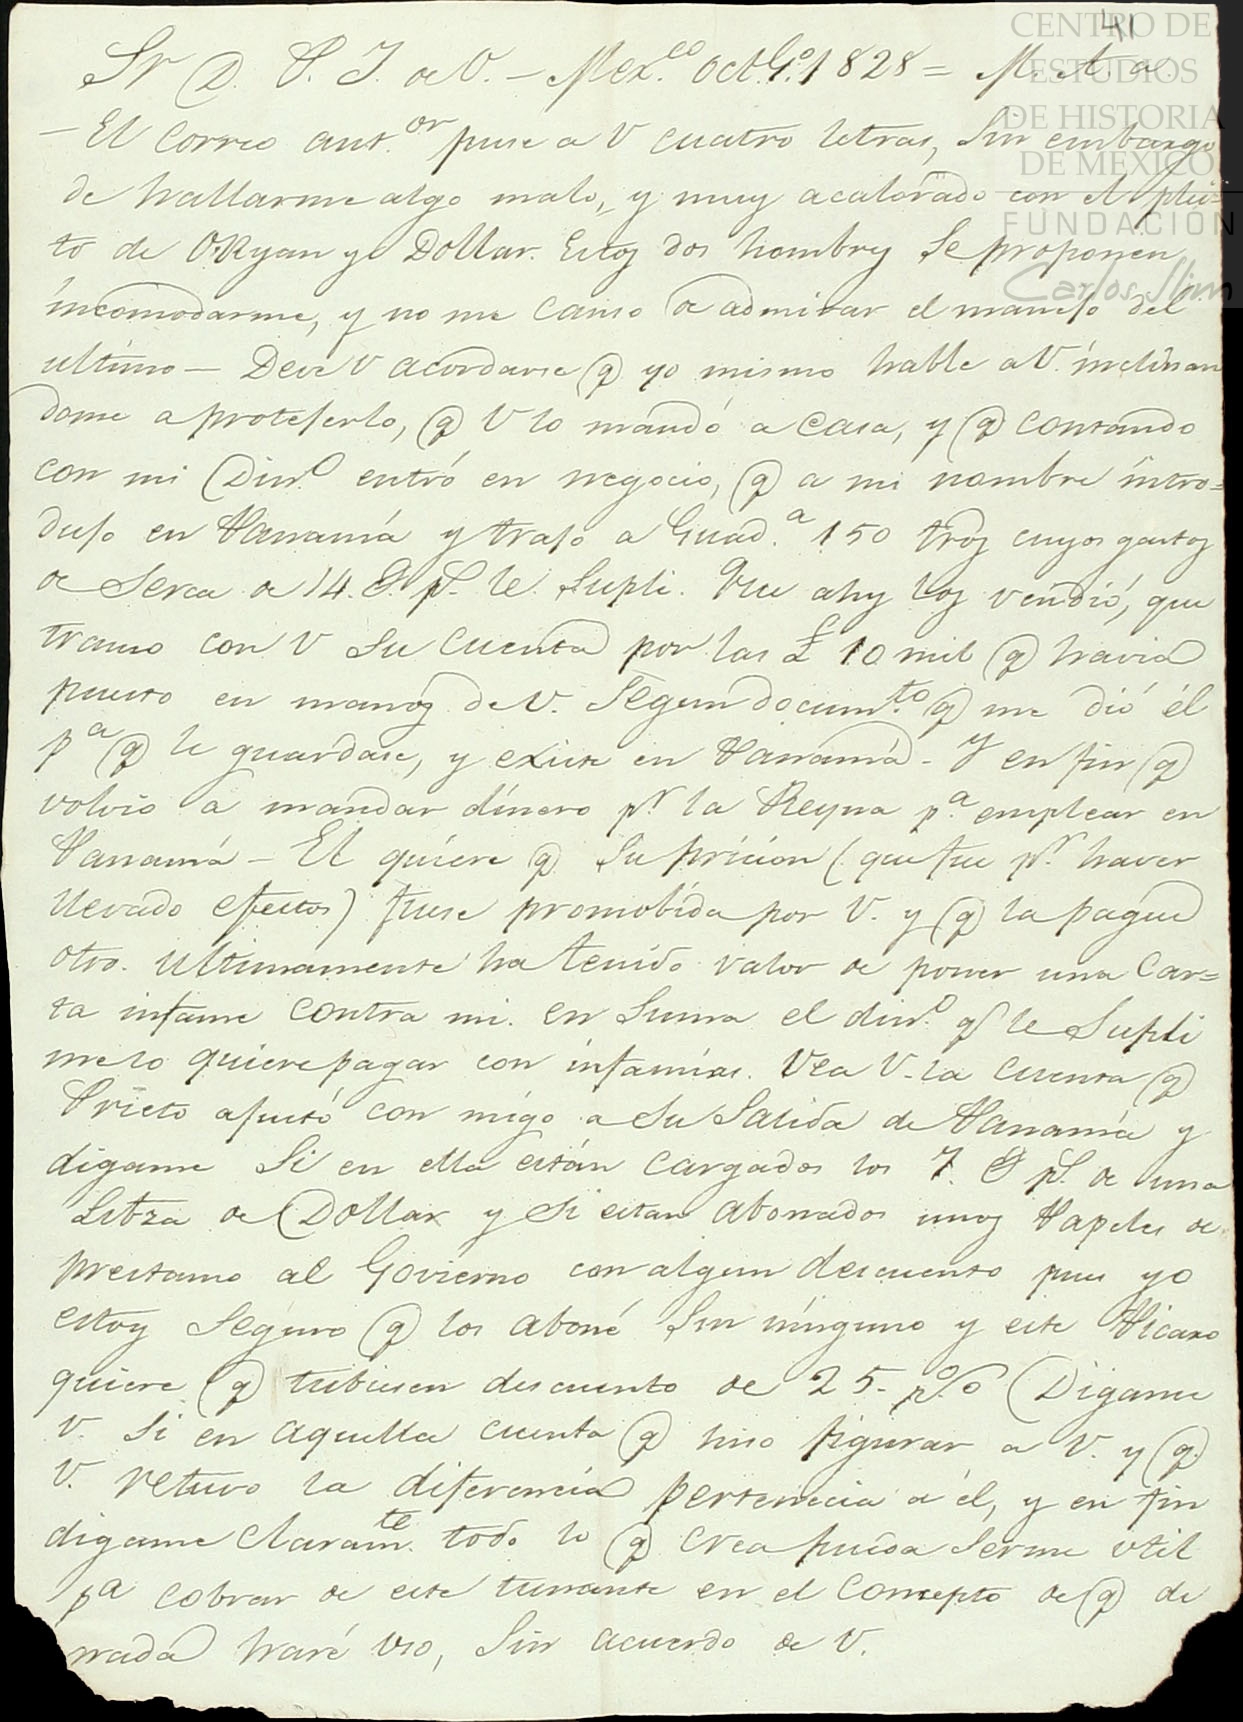 41
CENTRO DE
ESTUDIOS
DE HISTORIA
DE MEXICO
FUNDACIÓN
Carlos Slim
Sr D. P. J. de V. — Mex.co Oct.e 1º 1828 = M. A. a.
— El correo ant.or puse a V cuatro letras, sin embargo
de hallarme algo malo, y muy acalorado con el plei-
to de ORyan y Dollar. Estos dos hombres se proponen
incomodarme, y no me canso de admirar el manejo del
ultimo — Deve V acordarse q yo mismo hable a V. inclinan
dome a protejerlo, q V lo mandó a casa, y q contando
con mi Din.o entró en negocio, q a mi nombre intro=
dujo en Panamá y trajo a Guad.a 150 tros cuyos gastos
de serca de 14. S p.s le supli. Que ahy los vendió, que
transo con V su cuenta por las £ 10 mil q havia
puesto en manos de V. segun docum.to q me dió él
p.a q le guardase, y existe en Panamá — Y en fin q
volvio a mandar dinero p.r la Reyna p.a emplear en
Panamá — El quiere q su pricion (que fue p.r haver
llevado efectos) fuese promobida por V. y q la pague
otro. Ultimamente ha tenido valor de poner una Car=
ta infame contra mi. en suma el din.o q le supli
melo quiere pagar con infamias. Vea V. la cuenta q
Prieto ajustó con migo a su salida de Panamá y
digame si en ella están cargados los 7. S p.s de una
Libza de Dollar y si estan abonados unos Papeles de
prestamo al Govierno con algun descuento pues yo
estoy seguro q los aboné sin ninguno y este Picaro
quiere q tubiesen descuento de 25. p.% Digame
V. si en aquella cuenta q hiso figurar a V. y q.
V. retuvo la diferencia pertenecia a él, y en fin
digame claram.te todo lo q crea pueda serme util
p.a cobrar de este tunante en el concepto de q de
nada haré uso, sin acuerdo de V.